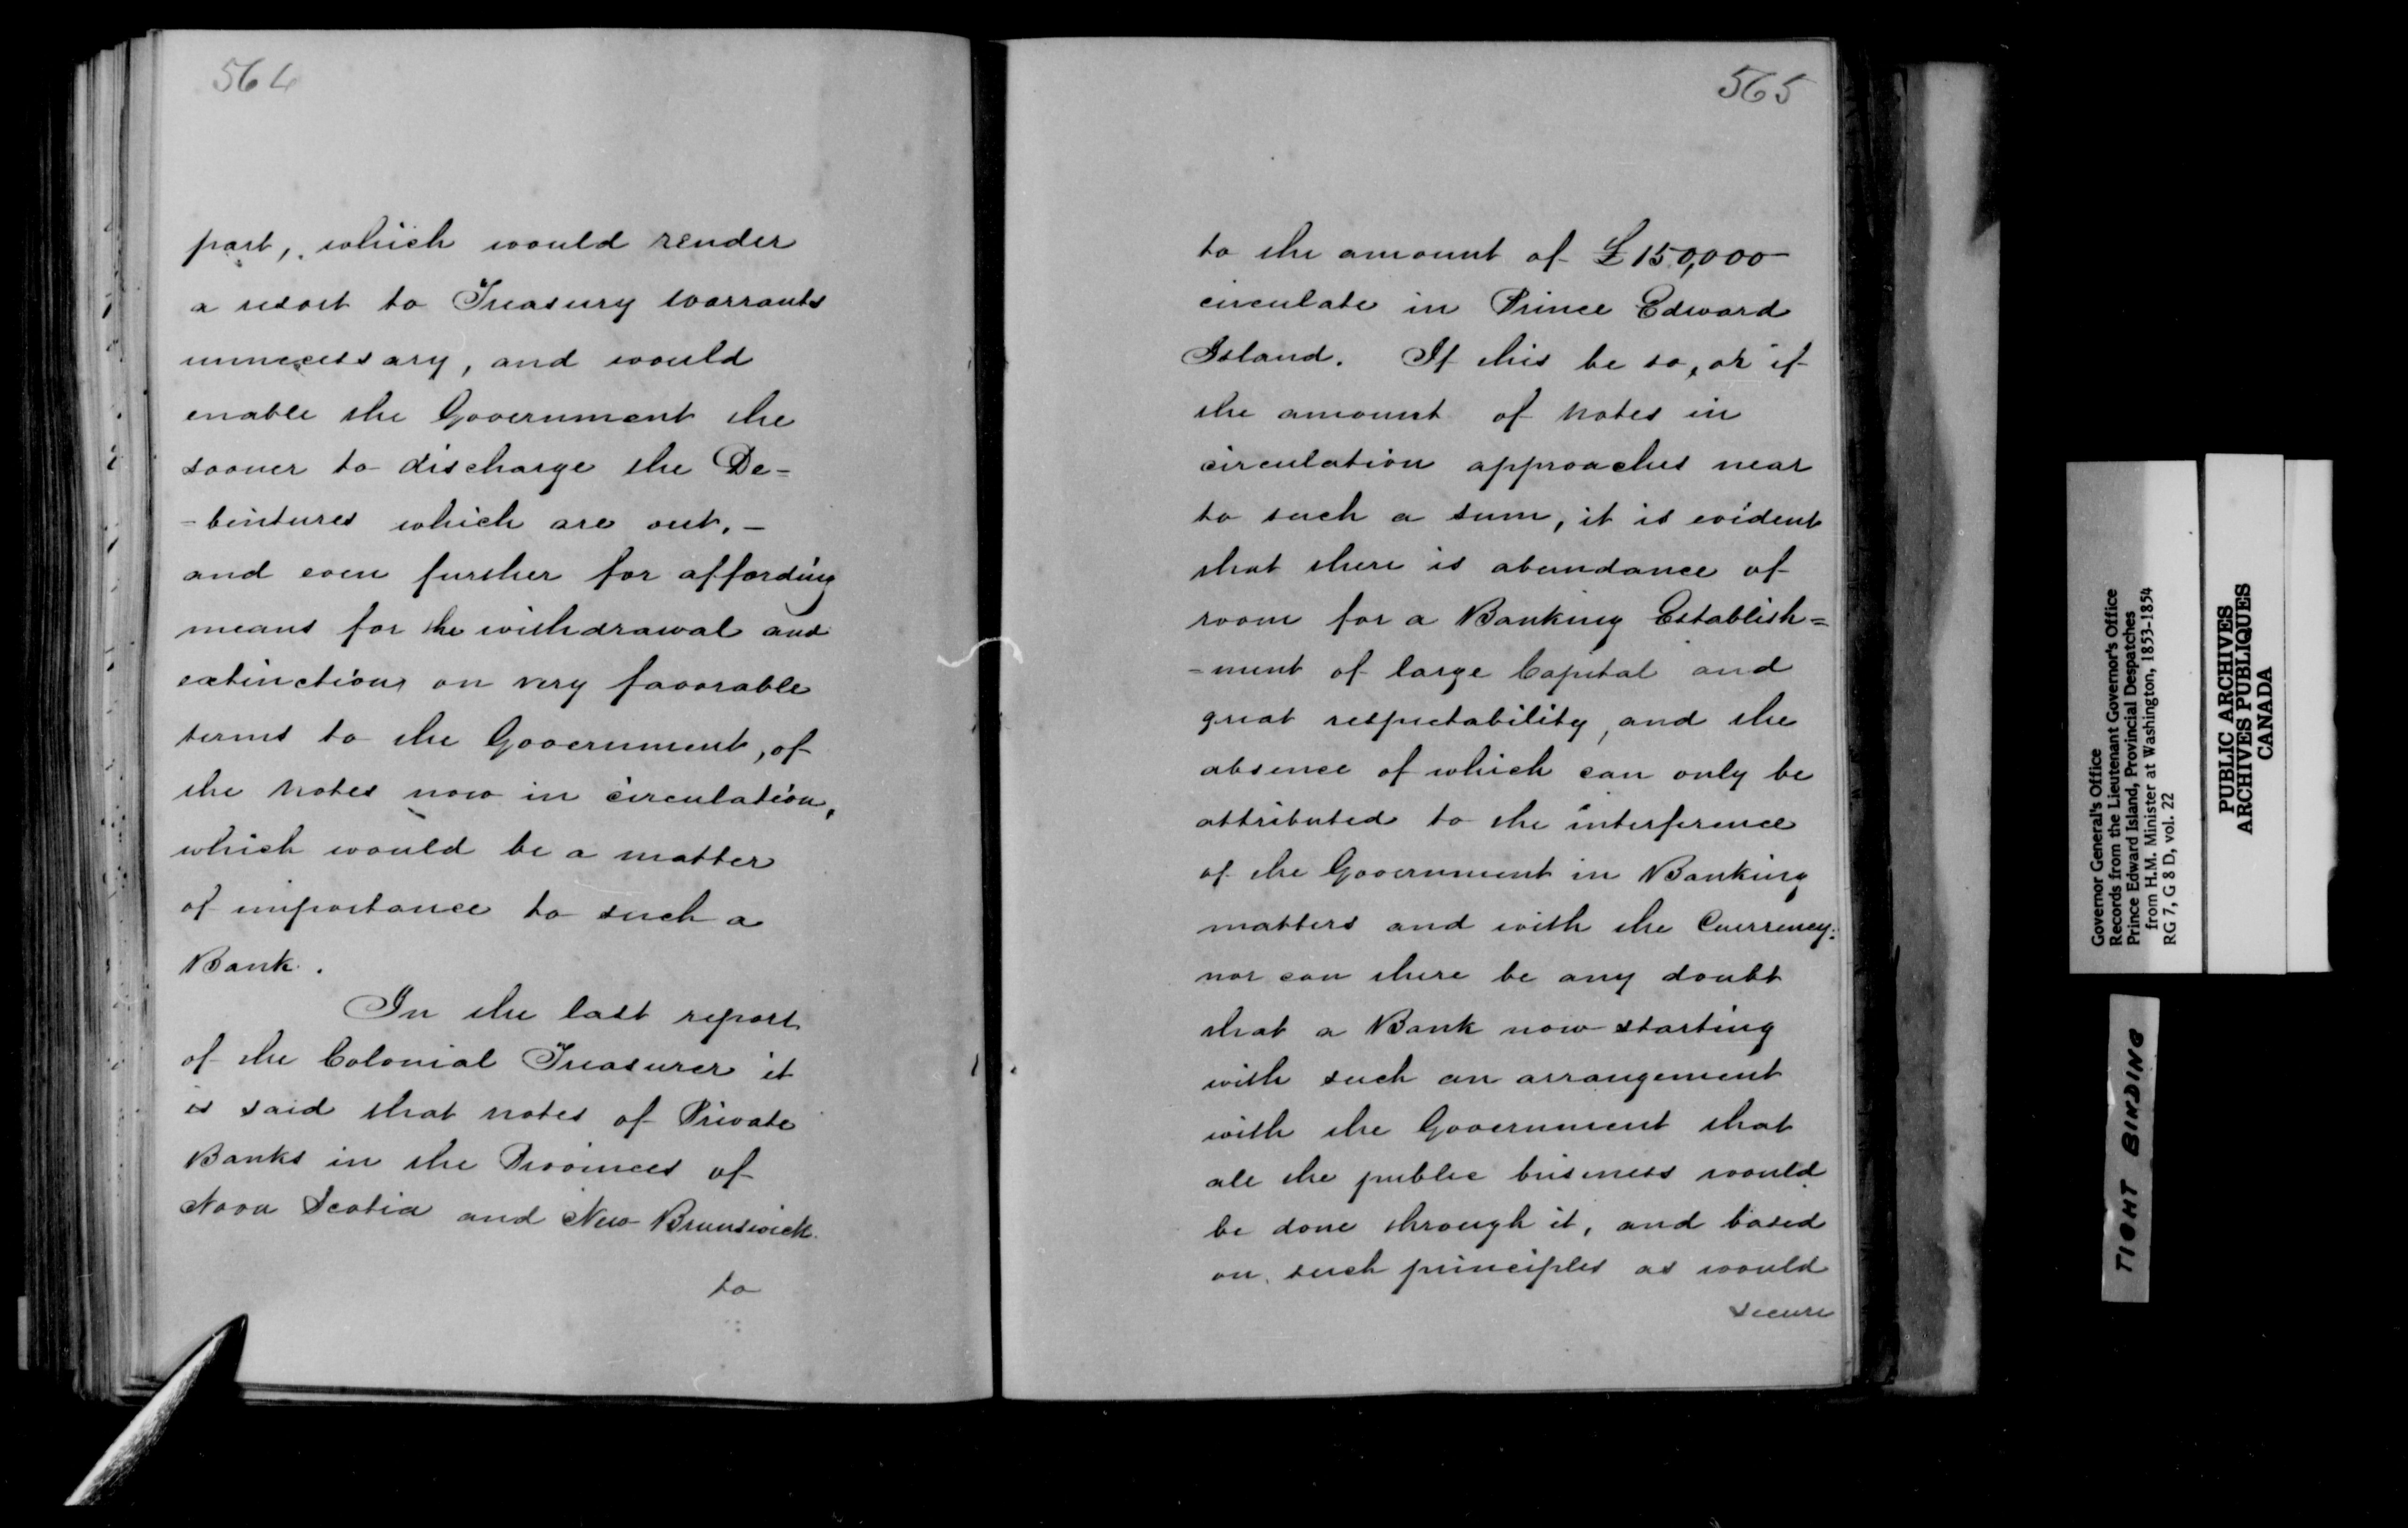 564
part, which would render
a resort to Treasury Warrants
unnecessary, and would
enable the Government the
sooner to discharge the De=
-bentures which are out, -
and even further for affording
means for the withdrawal and
extinction, on very favorable
terms to the Government, of
the notes now in circulation,
which would be a matter
of importance to such a
Bank.
In the last report
of the Colonial Treasurer it
is said that notes of Private
Banks in the Provinces of
Nova Scotia and New Brunswick
to
565
to the amount of £150,000
circulate in Prince Edward
Island. If this be so, or if
the amount of notes in
circulation approaches near
to such a sum, it is evident
that there is abundance of
room for a Banking Establish=
-ment of large Capital and
great respectability, and the
absence of which can only be
attributed to the interference
of the Government in Banking
matters and with the Currency:
nor can there be any doubt
that a Bank now starting
with such an arrangement
with the Government that
all the public business would
be done through it, and based
on such principles as would
secure
Governor General's Office
Records from the Lieutenant Governor's Office
Prince Edward Island, Provincial Despatches
from H.M. Minister at Washington, 1853-1854
RG 7, G 8 D, vol. 22
PUBLIC ARCHIVES
ARCHIVES PUBLIQUES
CANADA
TIGHT BINDING